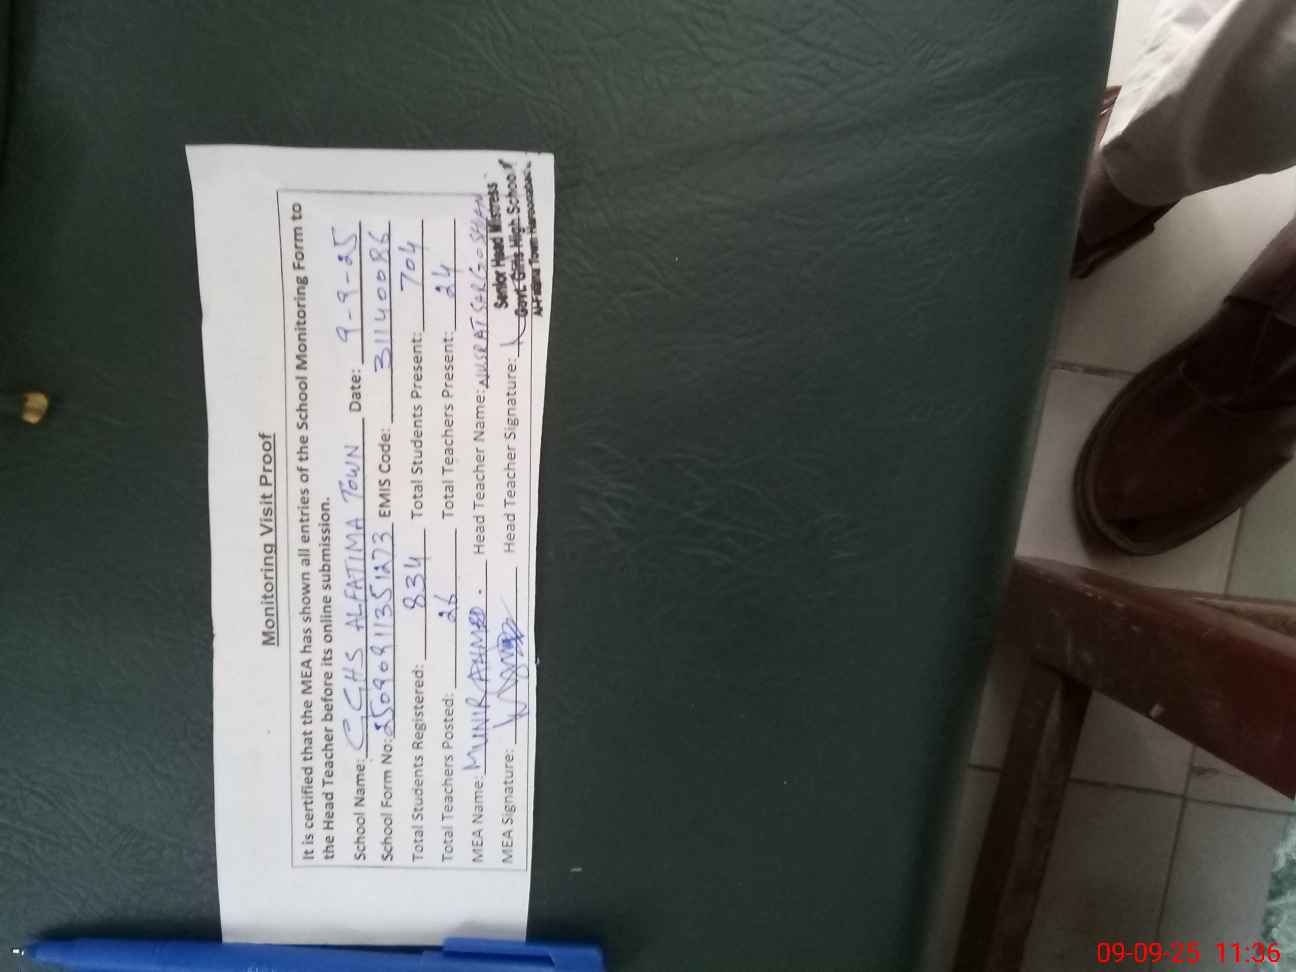 Monitoring Visit Proof
It is certified that the MEA has shown all entries of the School Monitoring Form to
the Head Teacher before its online submission.
School Name: GGHS ALFATIMA TOWN Date: 9-9-25
School Form No: 25090911351273 EMIS Code: 31140086
Total Students Registered: 834 Total Students Present: 704
Total Teachers Posted: 26 Total Teachers Present: 24
MEA Name: MUNIR AHMED. Head Teacher Name: NUSRAT SARGOSHAN
MEA Signature: Head Teacher Signature:
Senior Head Mistress
Govt. Girls High School
Al-Fatima Town
09-09-25 11:36